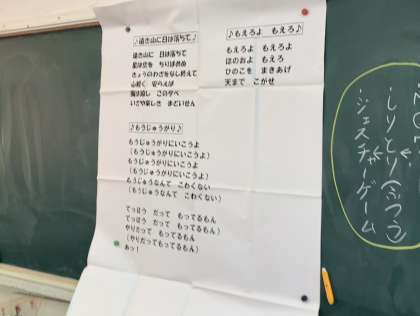 ♪遠き山に日は落ちて♪
遠き山に 日は落ちて
星は空を ちりばめぬ
きょうのわざをなし終えて
心軽く 安らえば
風は涼し この夕べ
いざや楽しき まどいせん
♪もうじゅうがり♪
もうじゅうがりにいこうよ
(もうじゅうがりにいこうよ)
もうじゅうがりにいこうよ
(もうじゅうがりにいこうよ)
もうじゅうなんて こわくない
(もうじゅうなんて こわくない)
てっぽう だって もってるもん
(てっぽう だって もってるもん)
やりだって もってるもん
(やりだってもってるもん)
あっ!
♪もえろよ もえろ♪
もえろよ もえろよ
ほのおよ もえろ
ひのこを まきあげ
天まで こがせ
しりとり(ふつう)
ジェスチャーゲーム